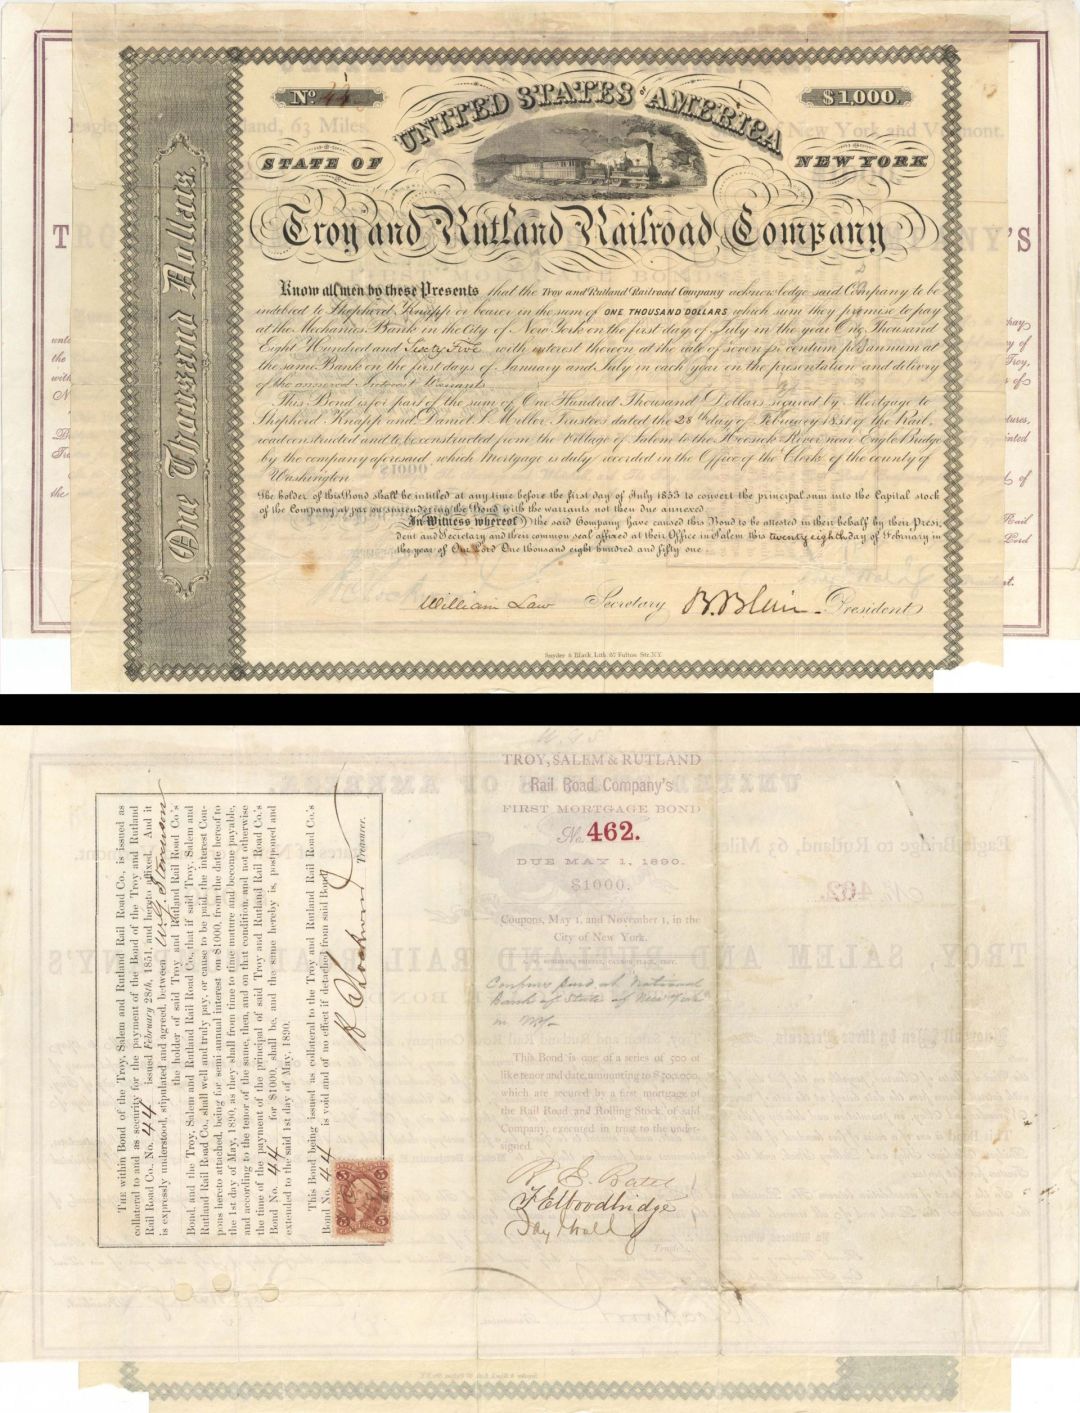 No. 44
$1,000.
UNITED STATES OF AMERICA
STATE OF NEW YORK
Troy and Rutland Railroad Company
One Thousand Dollars
Know all men by these Presents that the Troy and Rutland Railroad Company acknowledge said Company to be
indebted to Shepherd Knapp or bearer in the sum of ONE THOUSAND DOLLARS, which sum they promise to pay
at the Mechanics Bank in the City of New York on the first day of July in the year One Thousand
Eight Hundred and Sixty Five with interest thereon at the rate of seven per centum per annum at
the same Bank on the first days of January and July in each year on the presentation and delivery
of the annexed Interest Warrants
This Bond is for part of the sum of One Hundred Thousand Dollars secured by Mortgage to
Shepherd Knapp and Daniel S. Miller Trustees dated the 28th day of February 1851 of the Rail
road constructed and to be constructed from the Village of Salem to the Hoosick River near Eagle Bridge
by the company aforesaid which Mortgage is duly recorded in the Office of the Clerk of the county of
Washington
The holder of this Bond shall be intitled at any time before the first day of July 1853 to convert the principal sum into the Capital stock
of the Company at par on surrendering the Bond with the warrants not then due annexed
In Witness whereof the said Company have caused this Bond to be attested in their behalf by their Presi-
dent and Secretary and their common seal affixed at their Office in Salem this twenty eighth day of February in
the year of Our Lord One thousand eight hundred and fifty one
William Law Secretary B. Blair President
Snyder & Black, Lith. 87 Fulton Str. N.Y.
63 Miles.
New York and Vermont.
THE within Bond of the Troy, Salem and Rutland Rail Road Co., is issued as
collateral to and as security for the payment of the Bond of the Troy and Rutland
Rail Road Co., No. 44 issued February 28th, 1851, and hereto affixed. And it
is expressly understood, stipulated and agreed, between W. G. Stevenson
the holder of said Troy and Rutland Rail Road Co.'s
Bond, and the Troy, Salem and Rutland Rail Road Co., that if said Troy, Salem and
Rutland Rail Road Co., shall well and truly pay, or cause to be paid, the interest Cou-
pons hereto attached, being for semi-annual interest on $1000, from the date hereof to
the 1st day of May, 1890, as they shall from time to time mature and become payable,
and according to the tenor of the same, then, and on that condition, and not otherwise
the time of the payment of the principal of said Troy and Rutland Rail Road Co.'s
Bond No. 44 for $1000, shall be, and the same hereby is, postponed and
extended to the said 1st day of May, 1890.
This Bond being issued as collateral to the Troy and Rutland Rail Road Co.'s
Bond No. 44 is void and of no effect if detached from said Bond.
Treasurer.
TROY, SALEM & RUTLAND
Rail Road Company's
FIRST MORTGAGE BOND
No. 462.
DUE MAY 1, 1890.
$1000.
Coupons, May 1, and November 1, in the
City of New York.
Coupons paid at National
Bank of State of New York
in NY
This Bond is one of a series of 500 of
like tenor and date, amounting to $500,000,
which are secured by a first mortgage of
the Rail Road and Rolling Stock of said
Company, executed in trust to the under-
signed.
F E Woodbridge
Jay Gould
Trustees.